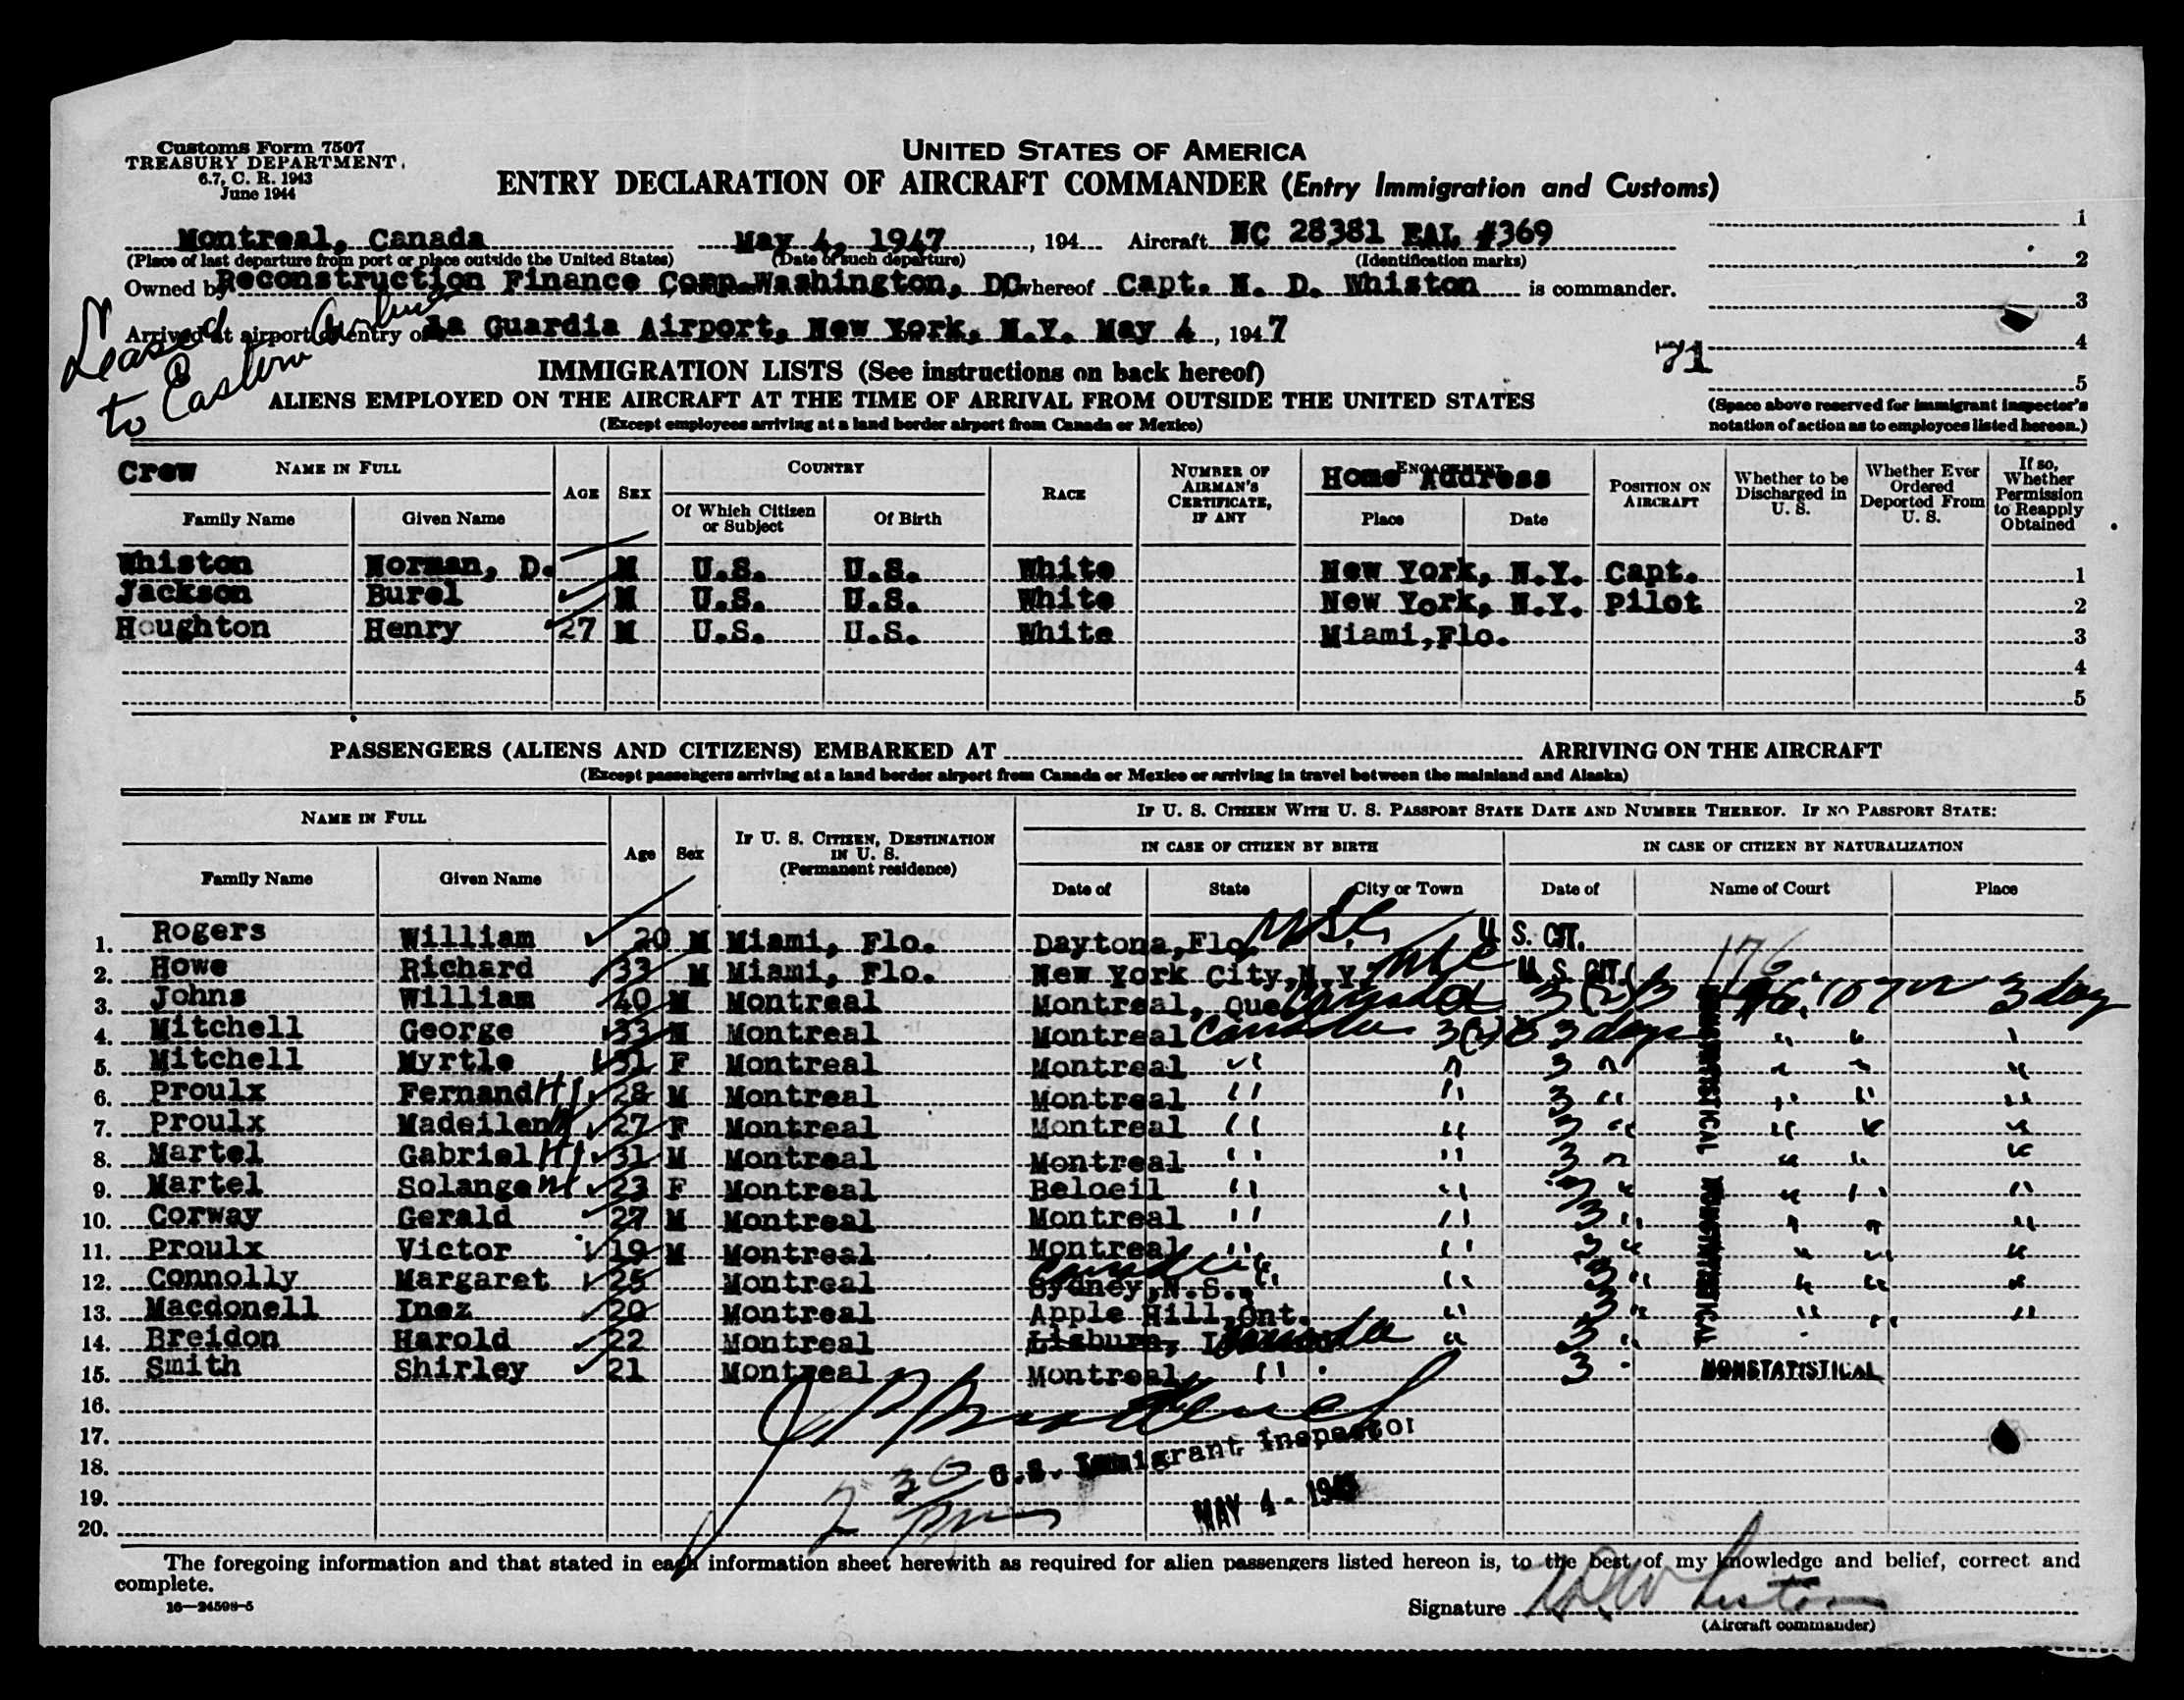 Customs Form 7507
TREASURY DEPARTMENT
6.7, C. R. 1943
June 1944
UNITED STATES OF AMERICA
ENTRY DECLARATION OF AIRCRAFT COMMANDER (Entry Immigration and Customs)
Montreal, Canada May 4, 1947, 194 Aircraft NC 28381 EAL #369
(Place of last departure from port or place outside the United States) (Date of such departure) (Identification marks)
Owned by Reconstruction Finance Corp. Washington, DC whereof Capt. N. D. Whiston is commander.
Arrived at airport of entry of La Guardia Airport, New York, N.Y. May 4, 1947
Leased to Eastern Airlines
71
1
2
3
4
5
IMMIGRATION LISTS (See instructions on back hereof)
ALIENS EMPLOYED ON THE AIRCRAFT AT THE TIME OF ARRIVAL FROM OUTSIDE THE UNITED STATES
(Except employees arriving at a land border airport from Canada or Mexico)
(Space above reserved for immigrant inspector's notation of action as to employees listed hereon.)
Crew NAME IN FULL AGE SEX COUNTRY RACE NUMBER OF AIRMAN'S CERTIFICATE, IF ANY ENGAGEMENT Home Address POSITION ON AIRCRAFT Whether to be Discharged in U. S. Whether Ever Ordered Deported From U. S. If so, Whether Permission to Reapply Obtained
Family Name Given Name Of Which Citizen or Subject Of Birth Place Date
Whiston Norman, D. M U.S. U.S. White New York, N.Y. Capt. 1
Jackson Burel M U.S. U.S. White New York, N.Y. Pilot 2
Houghton Henry 27 M U.S. U.S. White Miami, Flo. 3
4
5
PASSENGERS (ALIENS AND CITIZENS) EMBARKED AT ARRIVING ON THE AIRCRAFT
(Except passengers arriving at a land border airport from Canada or Mexico or arriving in travel between the mainland and Alaska)
NAME IN FULL Age Sex IF U. S. CITIZEN, DESTINATION IN U. S. (Permanent residence) IF U. S. CITIZEN WITH U. S. PASSPORT STATE DATE AND NUMBER THEREOF. IF NO PASSPORT STATE:
IN CASE OF CITIZEN BY BIRTH IN CASE OF CITIZEN BY NATURALIZATION
Family Name Given Name Date of State City or Town Date of Name of Court Place
1. Rogers William 20 M Miami, Flo. Daytona, Flo. U S. CIT. 176
2. Howe Richard 33 M Miami, Flo. New York City, N.Y. U. S. CIT.
3. Johns William 40 M Montreal Montreal, Que Canada 3(2)B 3 day
4. Mitchell George 33 M Montreal Montreal Canada 3(2)B 3 days " " "
5. Mitchell Myrtle 31 F Montreal Montreal " " 3 " " " "
6. Proulx Fernand 28 M Montreal Montreal " " 3 " " " "
7. Proulx Madeilen 27 F Montreal Montreal " " 3 " " " "
8. Martel Gabriel 31 M Montreal Montreal " " 3 " " " "
9. Martel Solange 23 F Montreal Beloeil " " 3 " " " "
10. Corway Gerald 27 M Montreal Montreal " " 3 " " " "
11. Proulx Victor 19 M Montreal Montreal " " 3 " " " "
12. Connolly Margaret 25 Montreal Sydney, N.S. Canada " " 3 " " " "
13. Macdonell Inez 20 Montreal Apple Hill, Ont. " 3 " " " "
14. Breidon Harold 22 Montreal Lisburn, Canada " 3 "
15. Smith Shirley 21 Montreal Montreal " 3 " NONSTATISTICAL
NONSTATISTICAL NONSTATISTICAL
16.
17.
18.
19.
20.
U.S. Immigrant Inspector
2 30 Pm
MAY 4 - 1947
The foregoing information and that stated in each information sheet herewith as required for alien passengers listed hereon is, to the best of my knowledge and belief, correct and
complete.
16—24598-5
Signature N D Whiston
(Aircraft commander)